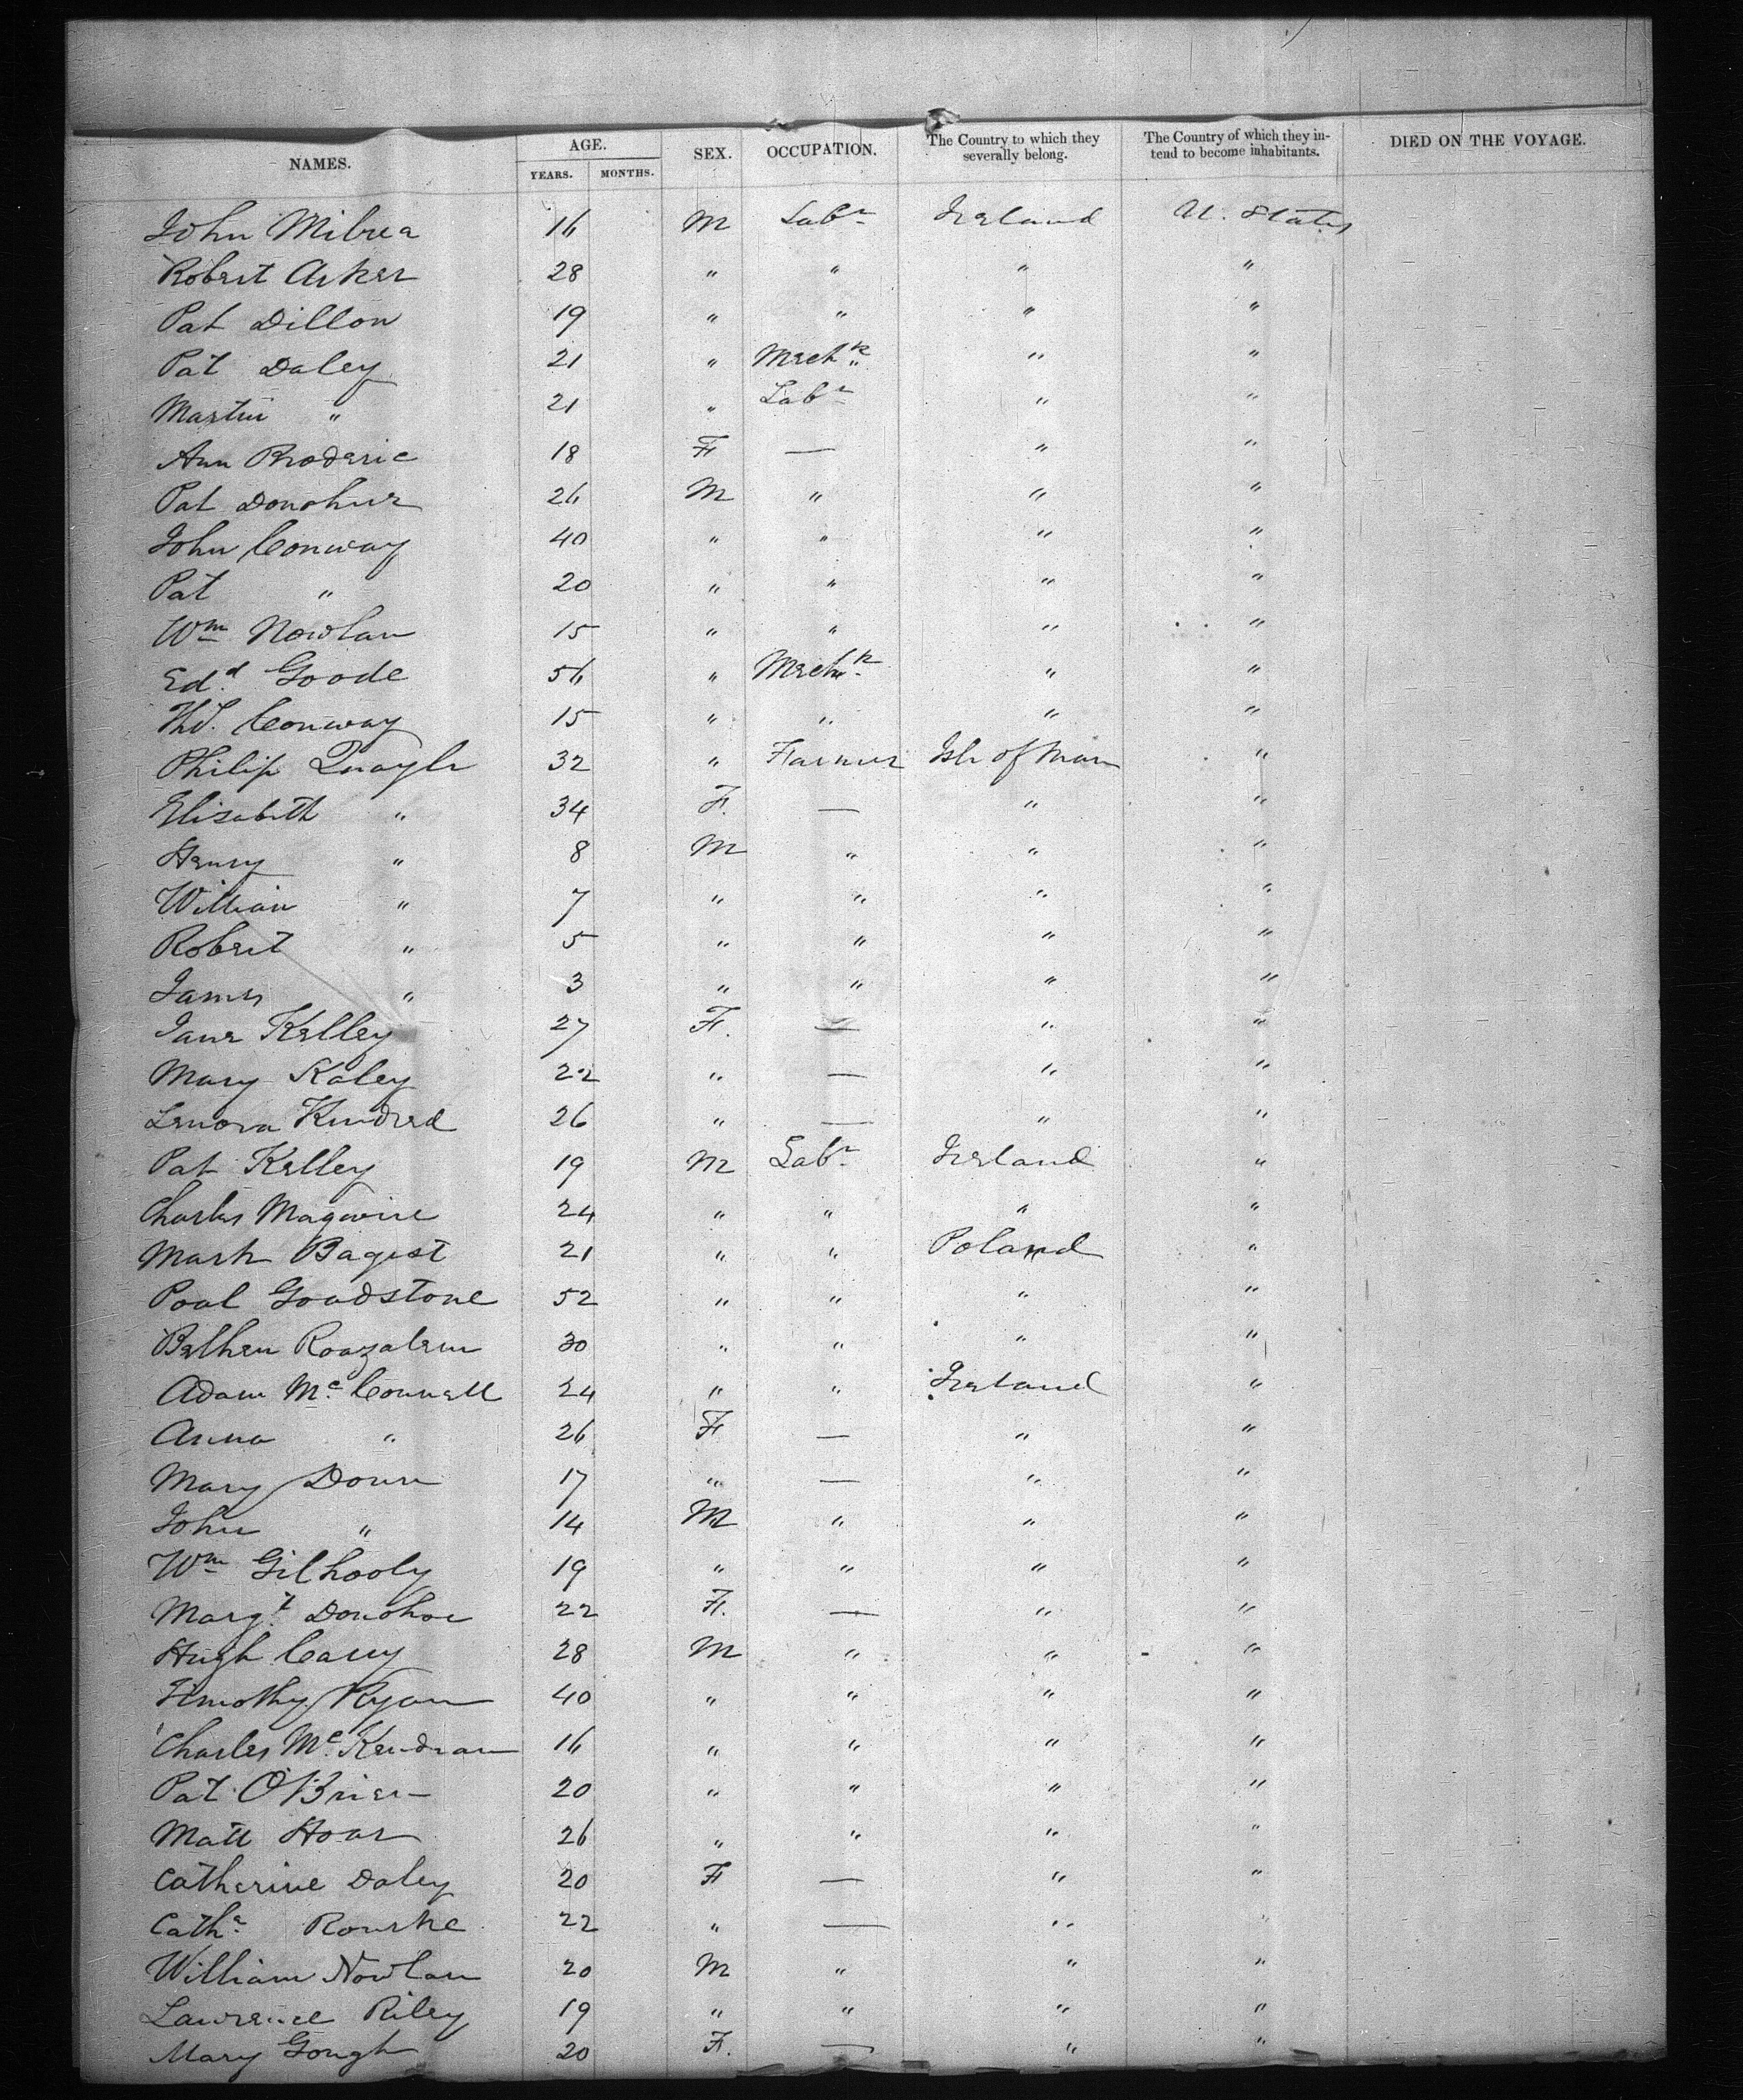 NAMES. AGE. YEARS. MONTHS. SEX. OCCUPATION. The Country to which they severally belong. The Country of which they intend to become inhabitants. DIED ON THE VOYAGE.
John Milrea 16 M Labr Ireland U. States
Robert Arker 28 " " " "
Pat Dillon 19 " " " "
Pat Daley 21 " Mechk " "
Martin " 21 " Labr " "
Ann Broderic 18 F — " "
Pat Donohue 26 M " " "
John Conway 40 " " " "
Pat " 20 " " " "
Wm Nowlan 15 " " " "
Edd. Goode 56 " Mechk " "
Conway 15 " " " "
Philip Quayle 32 " Farmer Isle of Man "
Elisabeth " 34 F. — " "
Henry " 8 M " " "
William " 7 " " " "
Robert " 5 " " " "
James " 3 " " " "
Jane Kelley 27 F. — " "
Mary Kaley 22 " — " "
Lenora Kindred 26 " — " "
Pat Kelley 19 M Labr Ireland "
Charles Magwire 24 " " " "
Mark Bagest 21 " " Poland "
Poal Goadstone 52 " " " "
Roazalem 30 " " " "
Adam Mc Connell 24 " " Ireland "
Anna " 26 F — " "
Mary Doun 17 " — " "
John " 14 M " " "
Wm Gilhooly 19 " " " "
Margt. Donohoe 22 F. — " "
Hugh Carry 28 M " " "
Timothy Ryan 40 " " " "
Charles Mc Kendran 16 " " " "
Pat O'Brien 20 " " " "
Matt Hoar 26 " " " "
Catherine Daley 20 F — " "
Catha Rourke 22 " — " "
William Nowlan 20 M " " "
Lawrence Riley 19 " " " "
Mary Gough 20 F. — " "